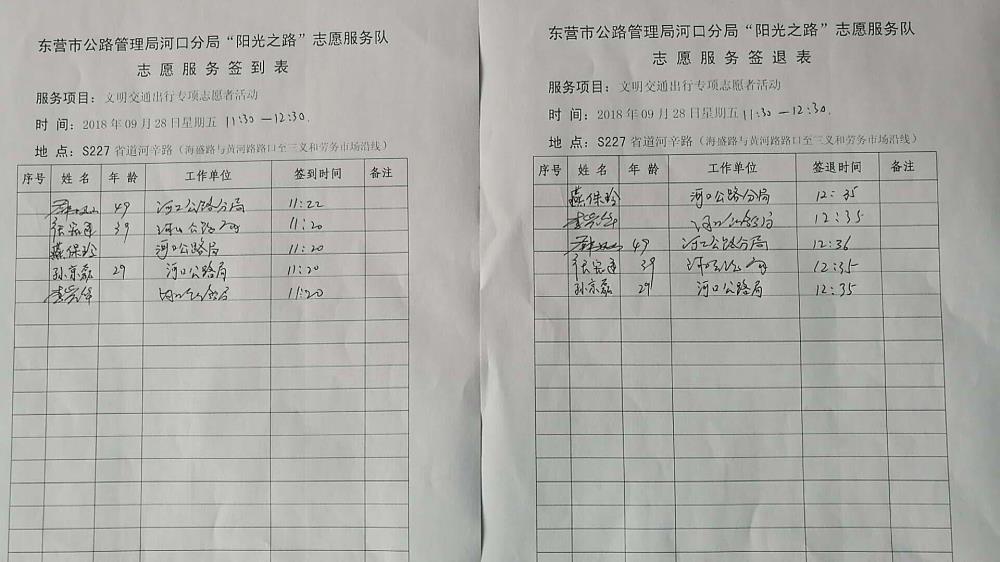 东营市公路管理局河口分局“阳光之路”志愿服务队
志愿服务签到表
服务项目：文明交通出行专项志愿者活动
时间：2018年09月28日星期五 11:30—12:30.
地点：S227省道河辛路（海盛路与黄河路路口至三义和劳务市场沿线）
序号 姓名 年龄 工作单位 签到时间 备注
49 河口公路分局 11:22
39 河口公路 11:20
燕保珍 河口公路局 11:20
孙京磊 29 河口公路局 11:20
11:20
东营市公路管理局河口分局“阳光之路”志愿服务队
志愿服务签退表
服务项目：文明交通出行专项志愿者活动
时间：2018年09月28日星期五 11:30—12:30.
地点：S227省道河辛路（海盛路与黄河路路口至三义和劳务市场沿线）
序号 姓名 年龄 工作单位 签退时间 备注
燕保珍 河口公路分局 12:35
12:35
49 河口公路分局 12:36
39 12:35
孙京磊 29 河口公路局 12:35